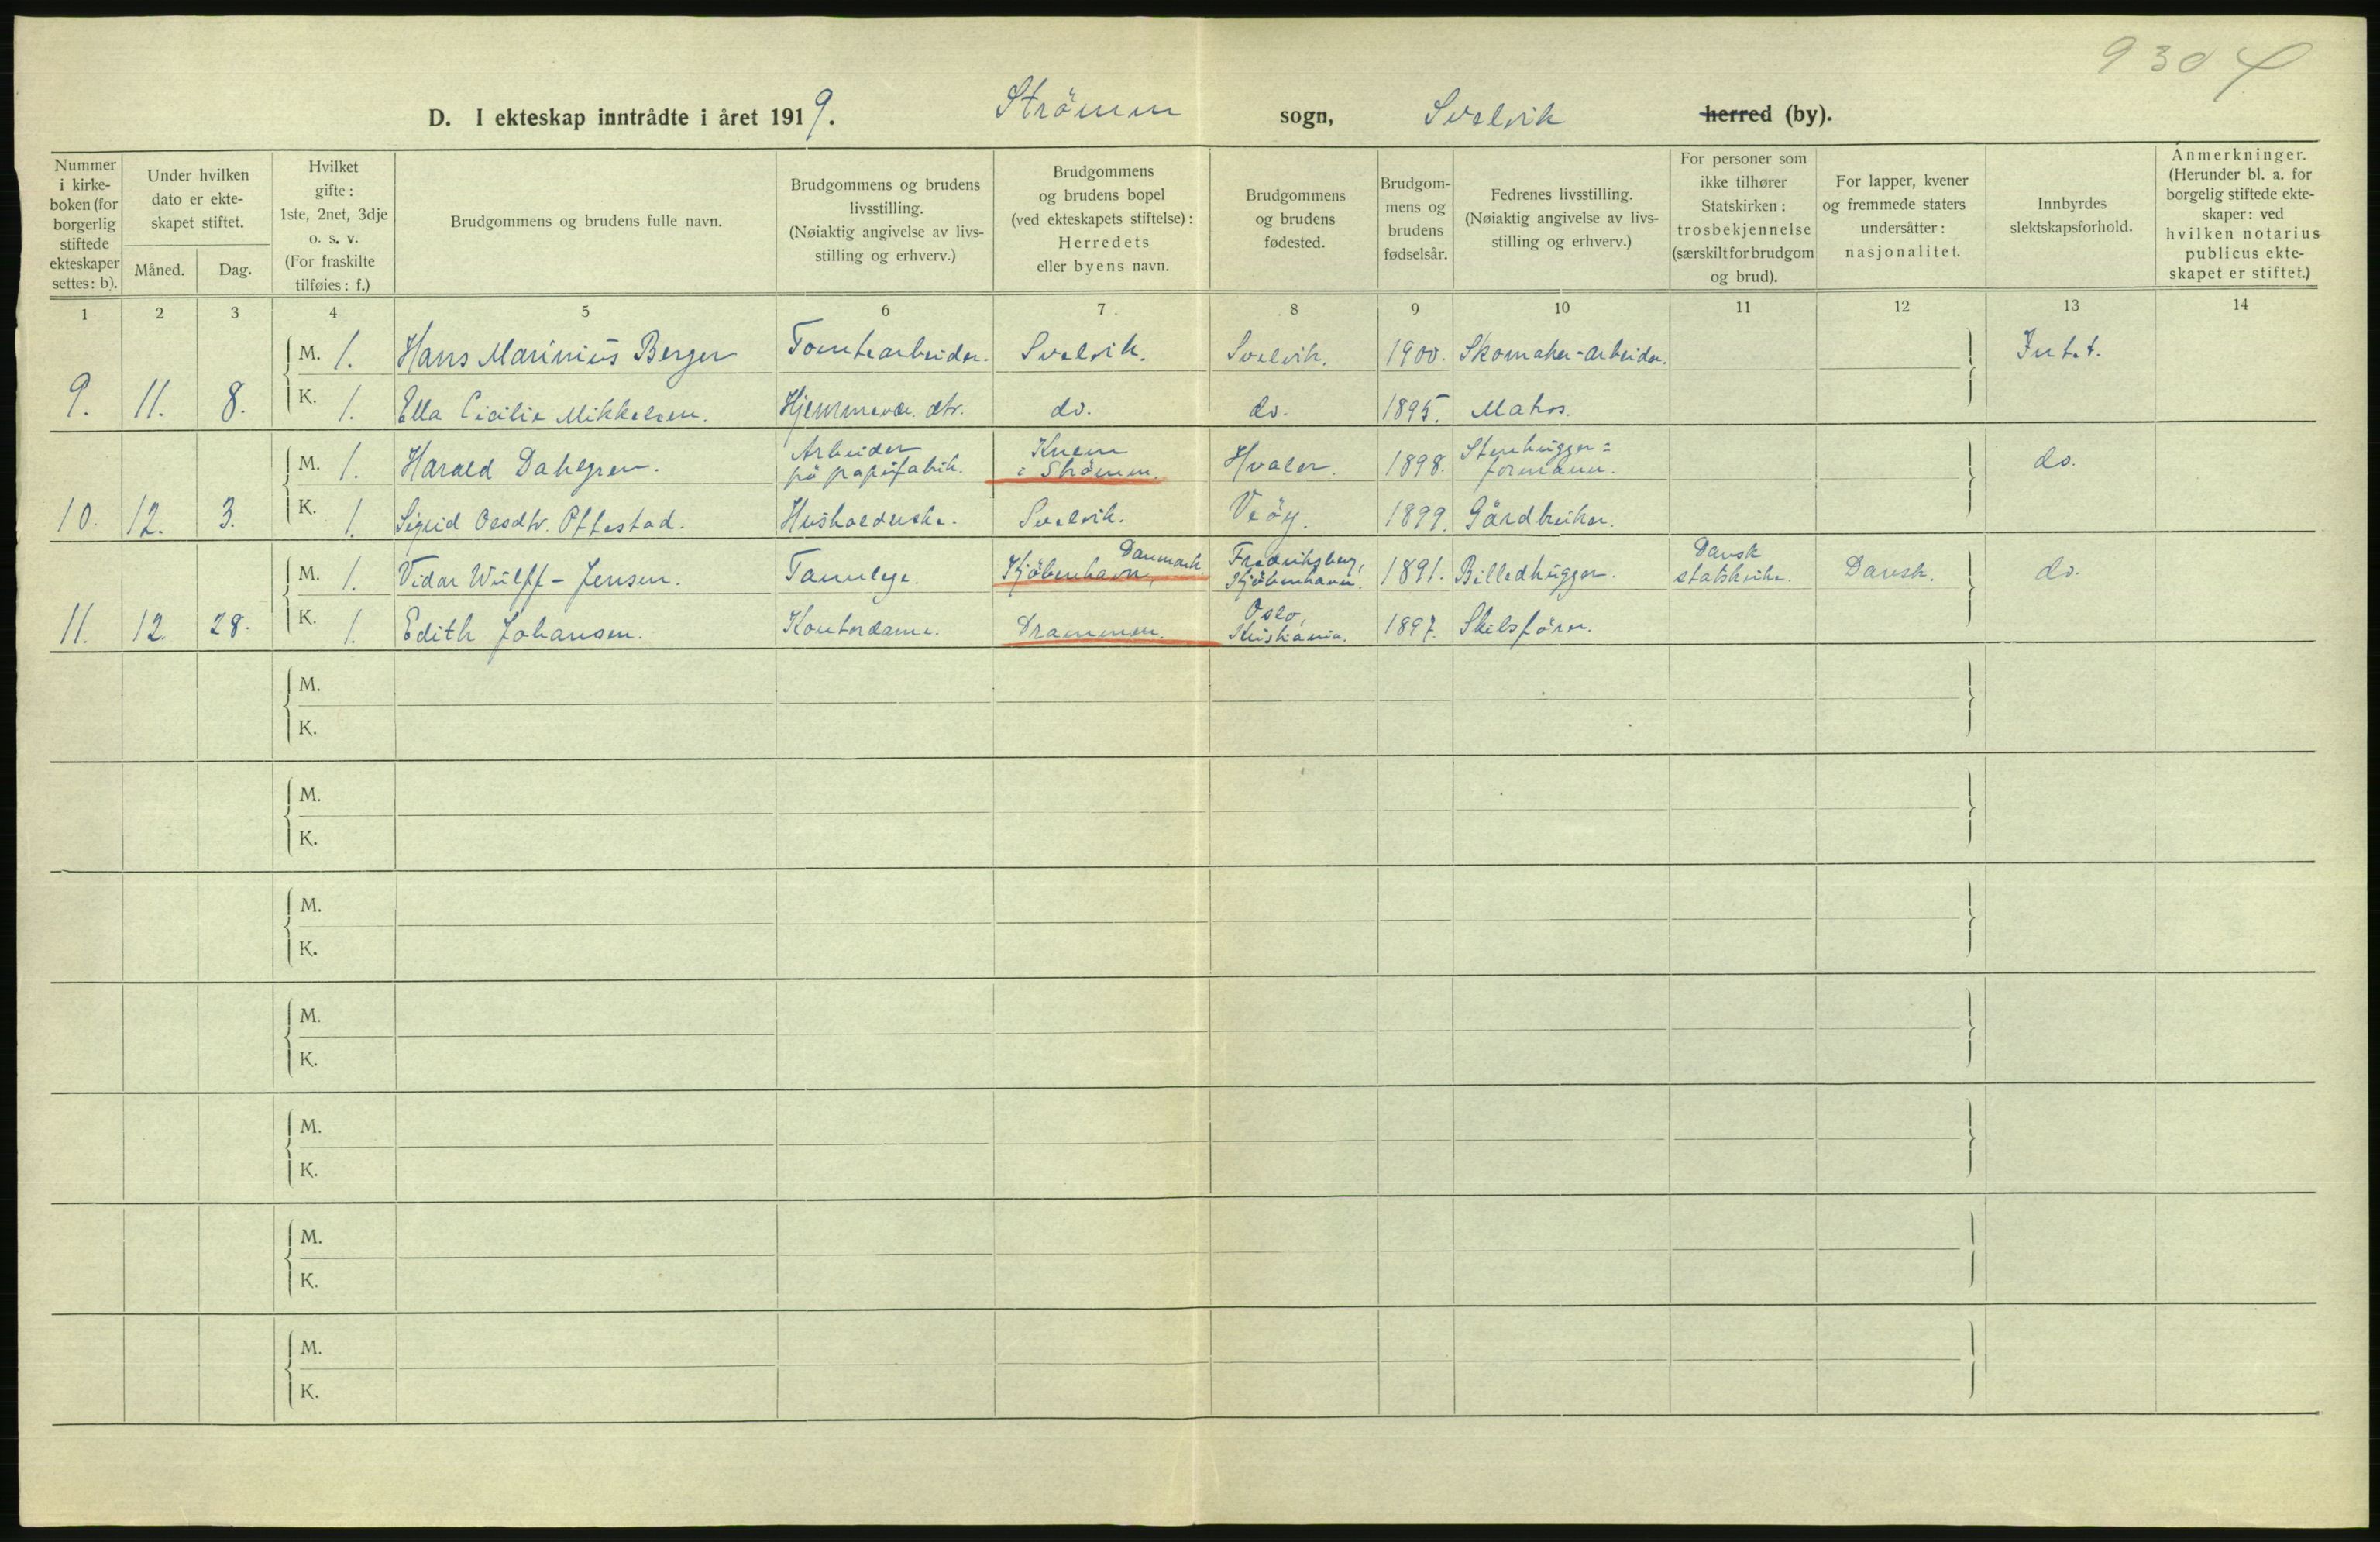 9304
D. I ekteskap inntrådte i året 1919. Strömm sogn, Svelvik herred (by).
Nummer i kirke- boken (for borgerlig stiftede ekteskaper settes: b).
Under hvilken dato er ekte- skapet stiftet.
Måned. Dag.
Hvilket gifte: 1ste, 2net, 3dje o. s. v. (For fraskilte tilføies: f.)
Brudgommens og brudens fulle navn.
Brudgommens og brudens livsstilling. (Nøiaktig angivelse av livs- stilling og erhverv.)
Brudgommens og brudens bopel (ved ekteskapets stiftelse): Herredets eller byens navn.
Brudgommens og brudens fødested.
Brudgom- mens og brudens fødselsår.
Fedrenes livsstilling. (Nøiaktig angivelse av livs- stilling og erhverv.)
For personer som ikke tilhører Statskirken: trosbekjennelse (særskilt for brudgom og brud).
For lapper, kvener og fremmede staters undersåtter: nasjonalitet.
Innbyrdes slektskapsforhold.
Anmerkninger. (Herunder bl. a. for borgerlig stiftede ekte- skaper: ved hvilken notarius publicus ekte- skapet er stiftet.)
1 2 3 4 5 6 7. 8 9 10 11 12 13 14
M. 1. Hans Marinius Berger Tomtearbeider. Svelvik. Svelvik. 1900. Skomaker-arbeider. Intet.
9. 11. 8. K. 1. Ella Cicilie Mikkelsen. Hjemmevær. dtr. do. do. 1895. Matros.
M. 1. Harald Dahlgren. Arbeider på papirfabrik. Knem i Strömm. Hvaler. 1898. Stenhugger= formann. do.
10. 12. 3. K. 1. Sigrid Olsdtr. Ottestad. Husholderske. Svelvik. Veöy. 1899. Gårdbruker.
M. 1. Vidar Wulff-Jensen. Tannlege. Kjöbenhavn, Danmark Fredriksberg, Kjöbenhavn. 1891. Billedhugger. Dansk statskirke. Dansk. do.
11. 12. 28. K. 1. Edith Johansen. Kontordame. Drammen. Oslo, Kristiania. 1897. Skibsförer.
M.
K.
M.
K.
M.
K.
M.
K.
M.
K.
M.
K.
M.
K.